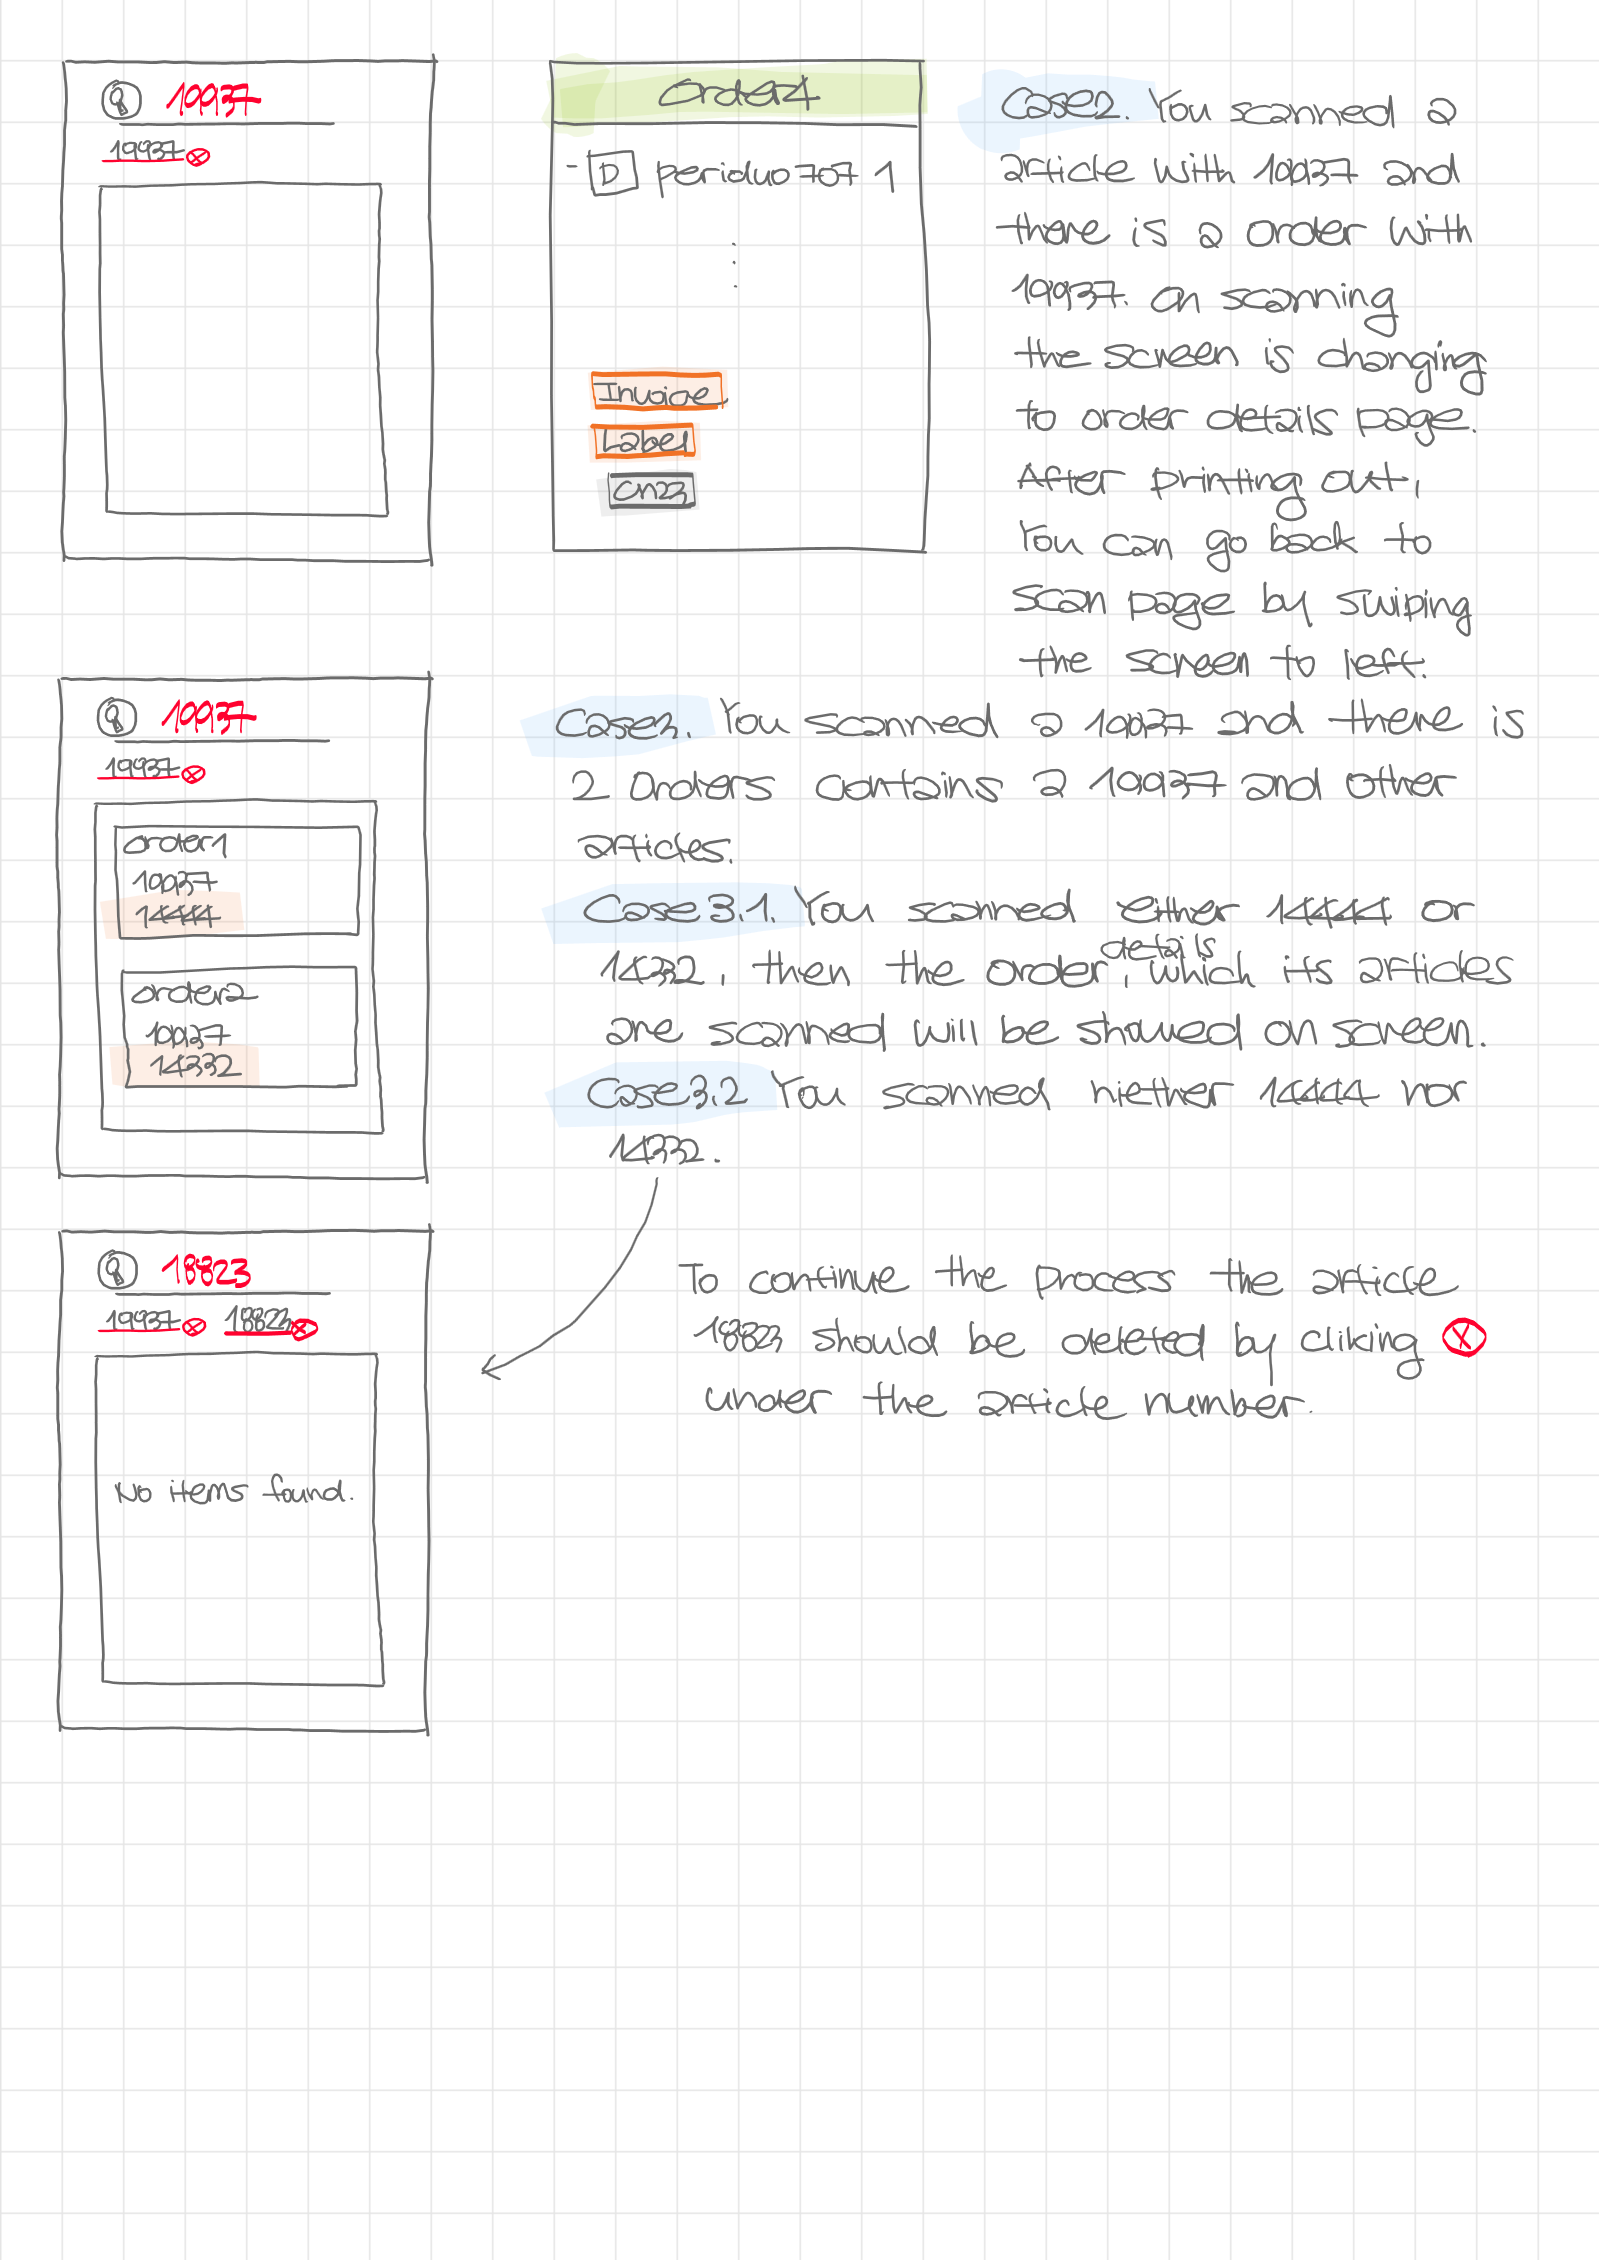 19937
19937
Order4
- D periduo 707 1
Invoice
Label
Cn23
Case2. You scanned a
article with 19937 and
there is a order with
19937. On scanning
the screen is changing
to order details page.
After printing out,
You can go back to
scan page by swiping
the screen to left.
19937
19937
order1
19937
14444
order2
19937
14332
Case3. You scanned a 19937 and there is
2 Orders contains a 19937 and other
articles.
Case3.1. You scanned either 14444 or
details
14332, then the order, which its articles
are scanned will be showed on screen.
Case3.2 You scanned niether 14444 nor
14332.
18823
19937 18823
No items found.
To continue the process the article
18823 should be deleted by cliking X
under the article number.